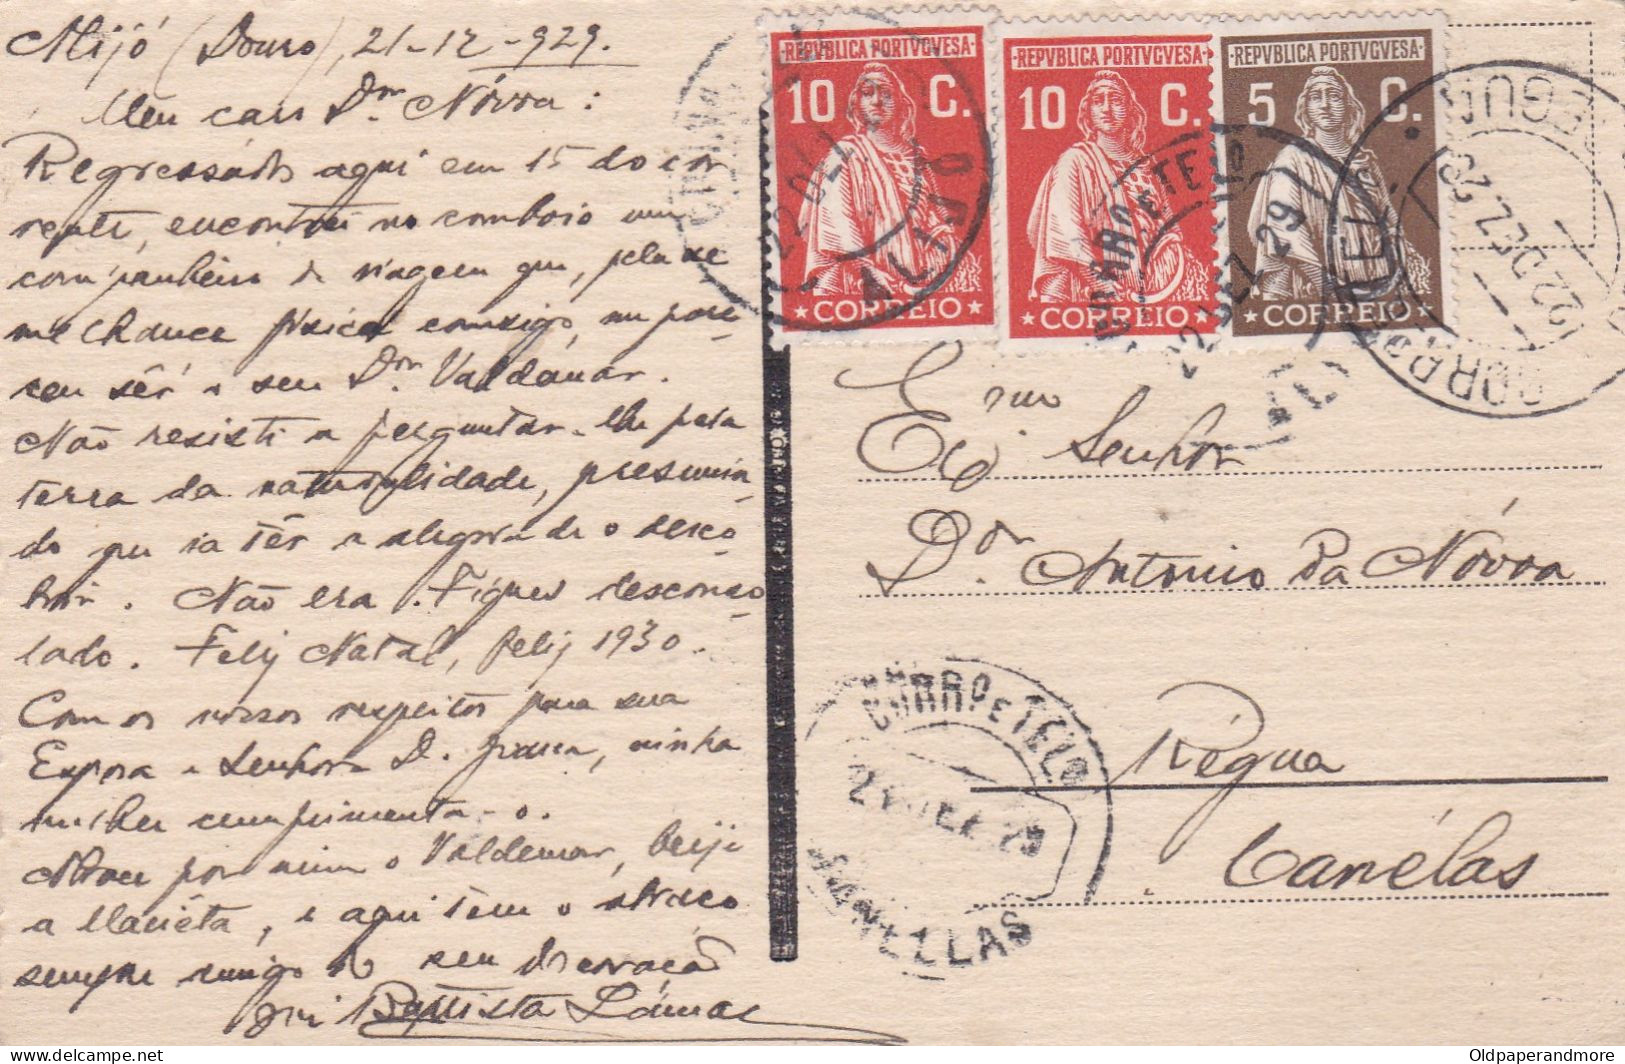 Alijó (Douro), 21-12-929.
Meu caro Dr. Nóvoa:
Regressado aqui em 15 do cor
rente, encontrei no comboio um
companheiro de viagem que, pela se
melhança física comsigo, me pare
ceu sêr o seu Dr. Valdemar.
Não resisti a perguntar-lhe pela
terra da naturalidade, presumin
do que ia têr a alegria de o desco
brir. Não era. Fiquei desconso
lado. Feliz Natal, feliz 1930.
Com os nossos respeitos para sua
Esposa e Senhora D. Graça, minha
mulher cumprimenta-o.
Abrace por mim o Valdemar, beije
a Marieta, e aqui tem o abraço
sempre amigo do seu do coração
Baptista Lamas
REPVBLICA PORTVGVESA
10 C.
CORREIO
REPVBLICA PORTVGVESA
10 C.
CORREIO
REPVBLICA PORTVGVESA
5 C.
CORREIO
22 DEZ 29
ALIJO
CORRO E TELO
22 DEZ 29
22 DEZ 29
Exmo
Senhor
Dor Antonio da Nóvoa
Régua
Canélas
CORRO E TELO
CANELLAS
Oldpaperandmore
delcampe.net